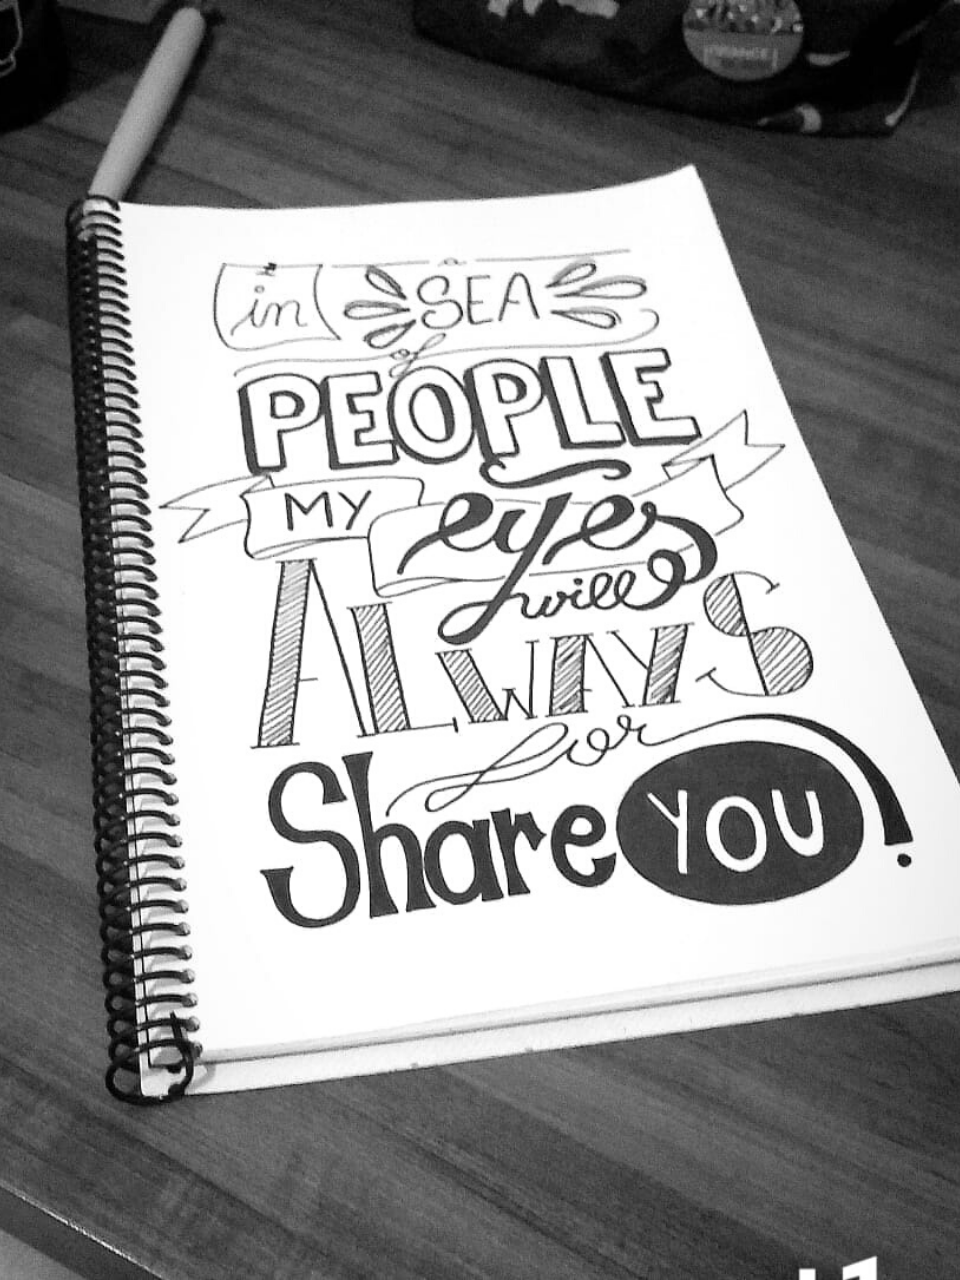 in a SEA
of
PEOPLE
MY eyes
will
ALWAYS
for
Share YOU